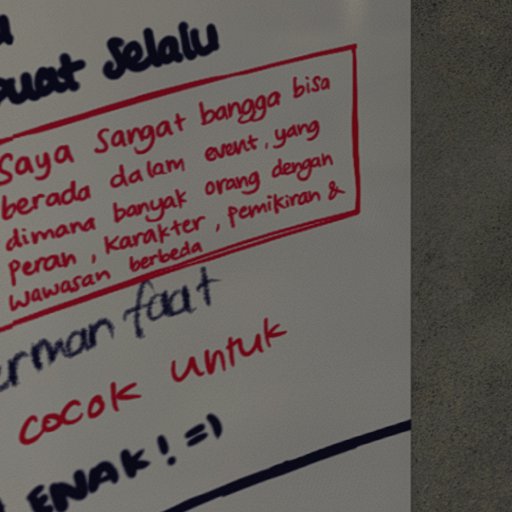 Selalu
Saya Sangat bangga bisa
berada dalam event, yang
dimana banyak orang dengan
peran, karakter, pemikiran &
wawasan berbeda
faat
cocok untuk
ENAK! =)